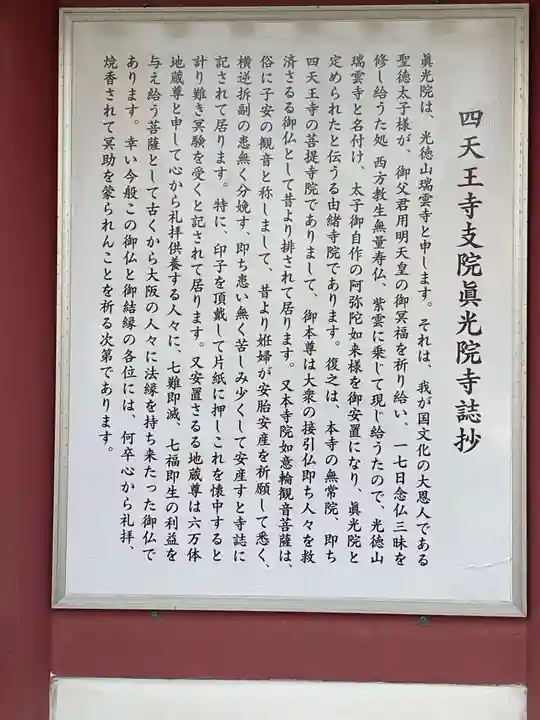 四天王寺支院眞光院寺誌抄
眞光院は、光徳山瑞雲寺と申します。それは、我が国文化の大恩人である
聖徳太子様が、御父君用明天皇の御冥福を祈り給い、一七日念仏三昧を
修し給うた処、西方救生無量寿仏、紫雲に乗じて現じ給うたので、光徳山
瑞雲寺と名付け、太子御自作の阿弥陀如来様を御安置になり、眞光院と
定められたと伝うる由緒寺院であります。復之は、本寺の無常院、即ち
四天王寺の菩提寺院でありまして、御本尊は大衆の接引仏即ち人々を救
済さるる御仏として昔より排されて居ります。又本寺院如意輪観音菩薩は、
俗に子安の観音と称しまして、昔より姙婦が安胎安産を祈願して悉く、
横逆拆副の患無く分娩す、即ち患い無く苦しみ少くして安産すと寺誌に
記されて居ります。特に、印子を頂戴して片紙に押しこれを懐中すると
計り難き冥験を受くと記されて居ります。又安置さるる地蔵尊は六万体
地蔵尊と申して心から礼拝供養する人々に、七難即滅、七福即生の利益を
与え給う菩薩として古くから大阪の人々に法縁を持ち来たった御仏で
あります。幸い今般この御仏と御結縁の各位には、何卒心から礼拝、
焼香されて冥助を蒙られんことを祈る次第であります。